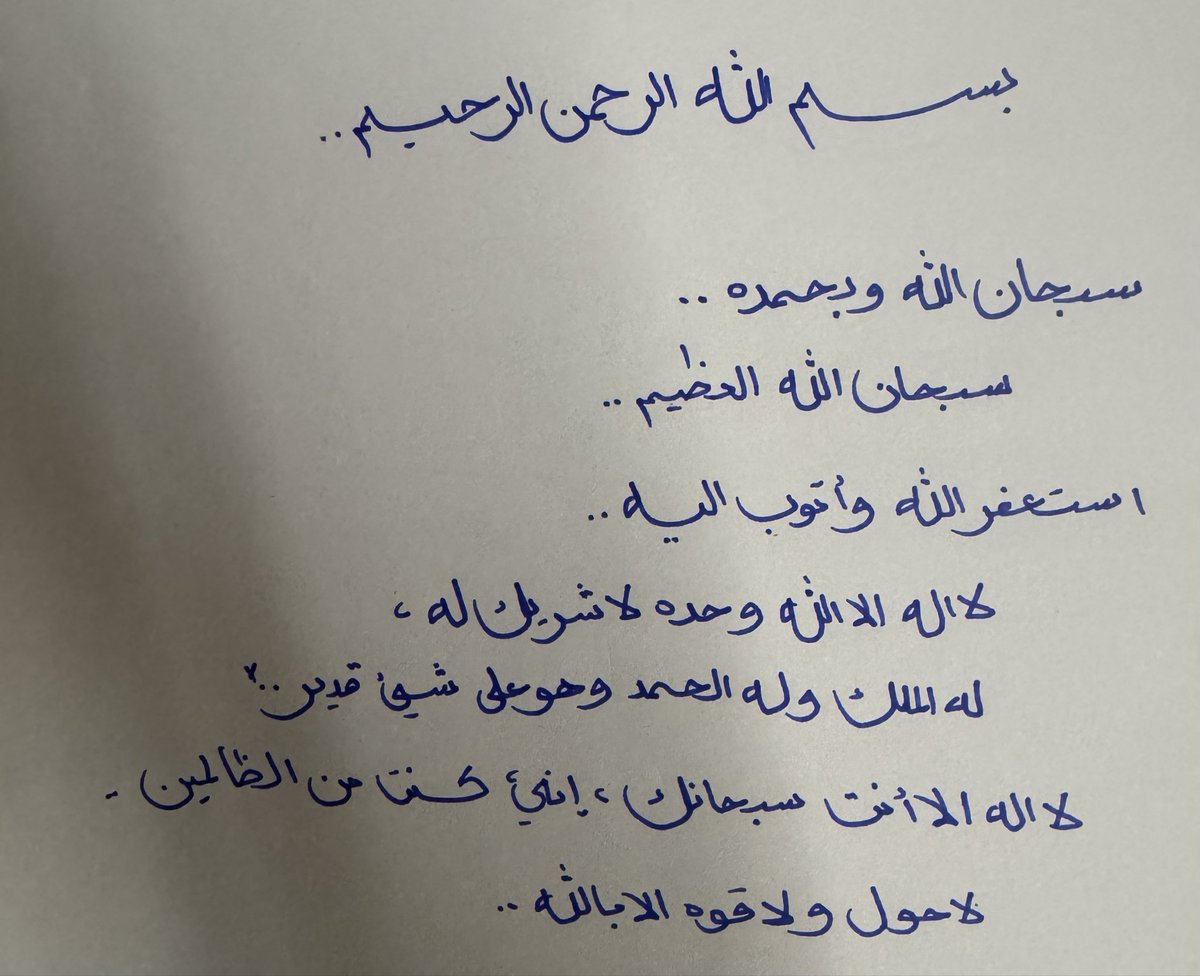 بسم الله الرحمن الرحيم ..
سبحان الله وبحمده ..
سبحان الله العظيم ..
استغفر الله وأتوب اليه ..
لا اله الا الله وحده لا شريك له ،
له الملك وله الحمد وهو على شيئ قدير ..
لا اله الا أنت سبحانك ، إنيً كنت من الظالمين .
لا حول ولا قوه الا بالله ..